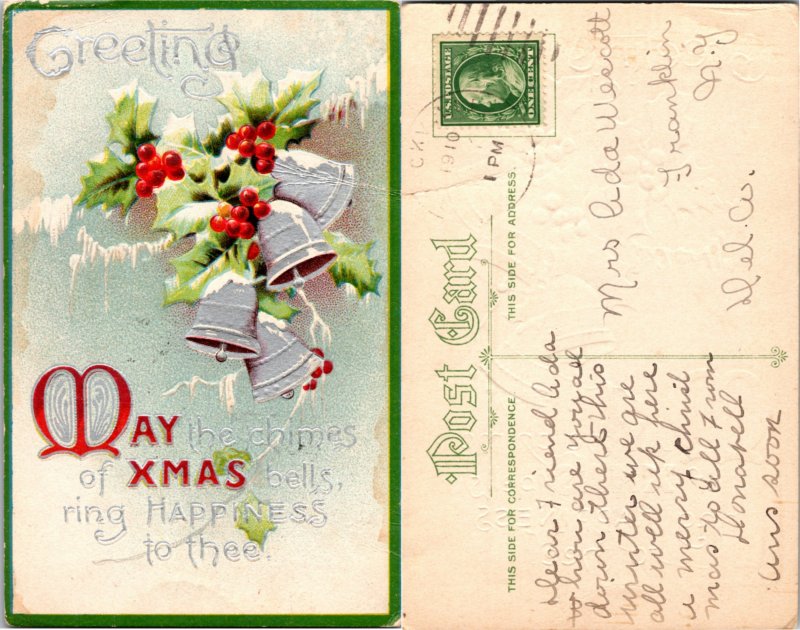 Greeting
MAY the chimes
of XMAS bells,
ring HAPPINESS
to thee.
U.S. POSTAGE
ONE CENT
1910
1 PM
Post Card
THIS SIDE FOR CORRESPONDENCE.
THIS SIDE FOR ADDRESS.
Dear Friend Ada
whou are you all
down there this
winter we are
all well up here
a merry christ
mas to all From
ans soon
Mrs Ada Wescott
Franklin
Del. Co.
N.Y